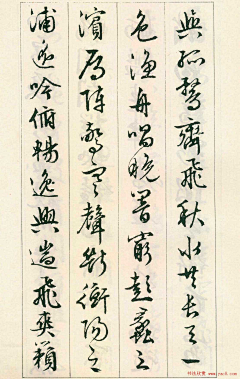 與孤鶩齊飛秋水共長天一
色漁舟唱晚響窮彭蠡之
濱雁陣驚寒聲斷衡陽之
浦遙吟俯暢逸興遄飛爽籟